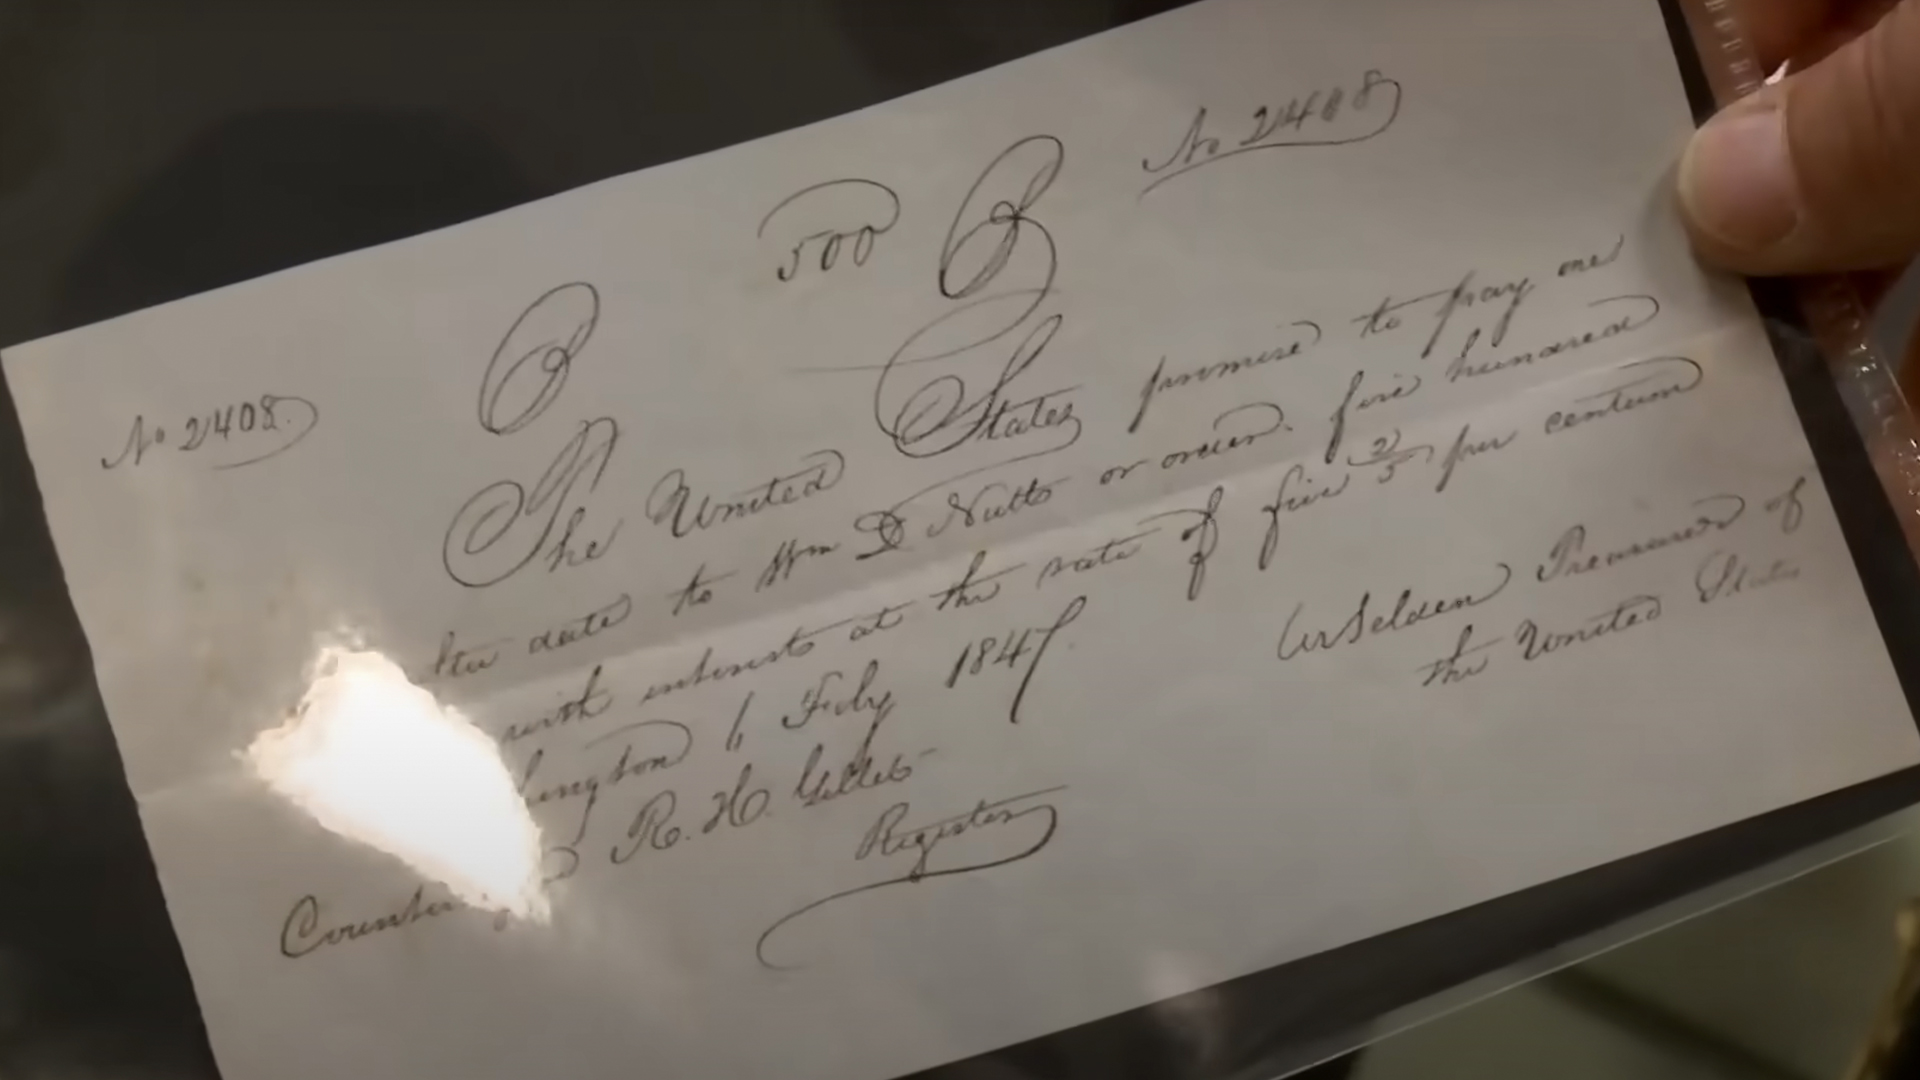 No 2408
500
B
B
No 2408.
The United States promise to pay one
after date to Wm D Nutts or order. five hundred
with interests at the rate of five 2/5 per centum
hington 1, July 1847.
W Selden Treasurer of
the United States
R. H. Gillet
Register